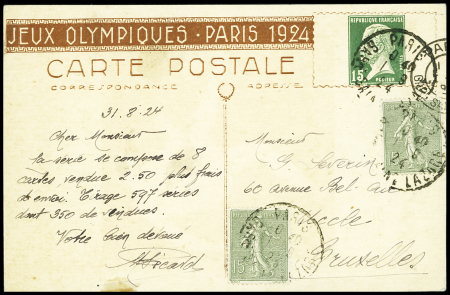 JEUX OLYMPIQUES · PARIS 1924
CARTE POSTALE
CORRESPONDANCE ADRESSE
RÉPUBLIQUE FRANÇAISE
15
PASTEUR
PARIS
31.8.24
Cher Monsieur
la série se compose de 8
cartes vendue 2.50 plus frais
de envoi. Tirage 597 series
dont 350 de vendues.
Votre bien dévoué
Monsieur
G. Everin
60 avenue Bel-Air
Uccle
Bruxelles
ST LAZARE
PARIS
15